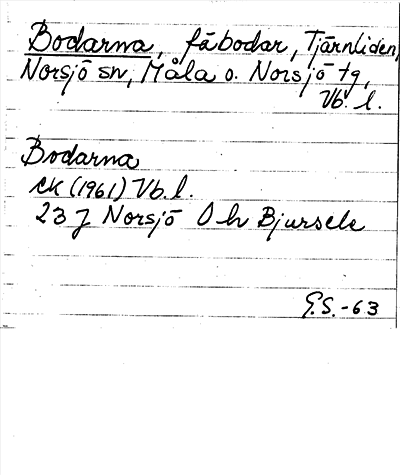 Bodarna, fäbodar, Tjärnliden,
Norsjö sn, Måla o. Norsjö tg,
Vb. l.
Bodarna
ek (1961) Vb. l.
23 J Norsjö O h Bjursele
G.S. -63